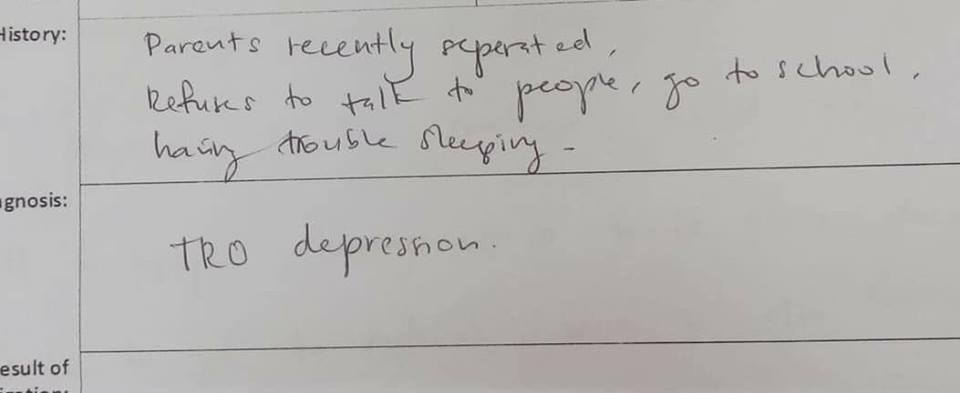 History:
Parents recently seperated,
Refuses to talk to people, go to school,
having trouble sleeping -
agnosis:
TRO depression.
esult of